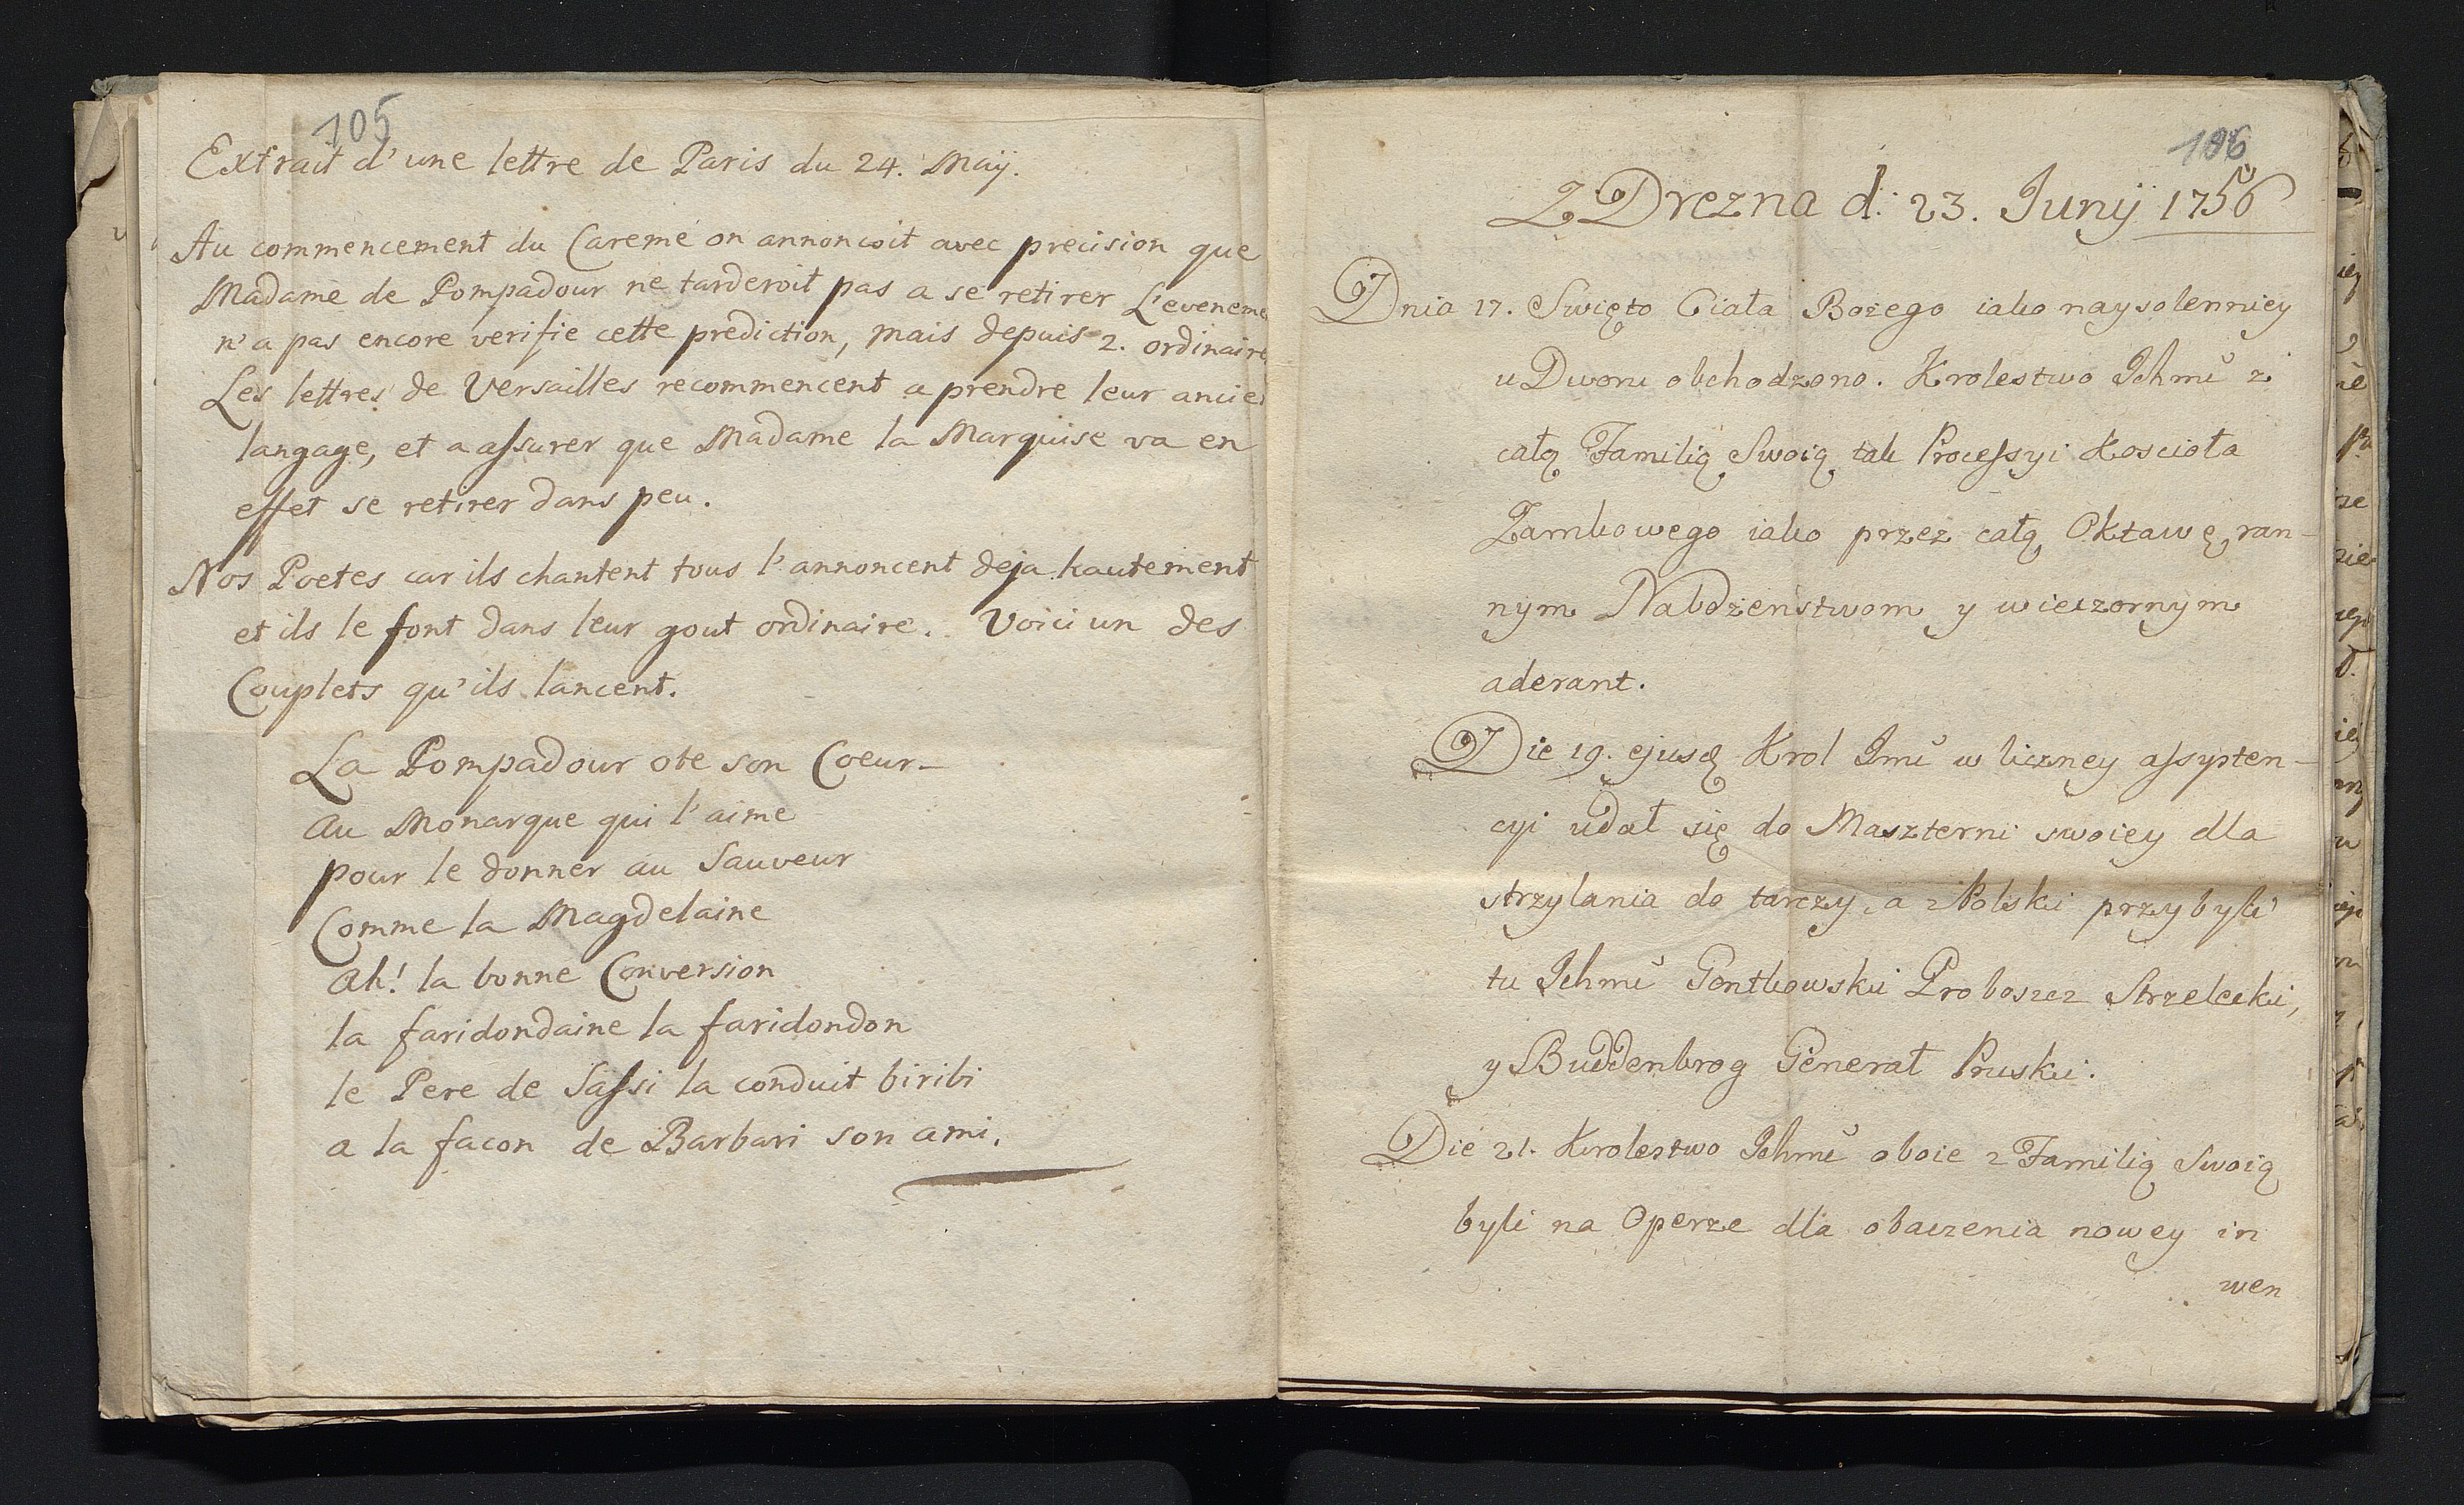 105
Extrait d'une lettre de Paris du 24. Maÿ.
Au commencement du Careme on annoncoit avec precision que
Madame de Pompadour ne tarderoit pas a se retirer L'eveneme
n'a pas encore verifie cette prediction, mais depuis 2. ordinaire
Les lettres de Versailles recommencent a prendre leur ancie
langage, et a aſsurer que Madame la Marquise va en
effet se retirer dans peu.
Nos Poetes car ils chantent tous l'annoncent deja hautement
et ils le font dans leur gout ordinaire. Voici un des
Couplets qu'ils lancent.
La Pompadour ote son Coeur
Au Monarque qui l'aime
pour le donner au Sauveur
Comme la Magdelaine
Ah! la bonne Conversion
la faridondaine la faridondon
le Pere de Saſsi la conduit biribi
a la facon de Barbari son ami.
106
Z Drezna d: 23. Junÿ 1756
Dnia 17. Swięto Ciała Bożego iako naysolenniey
u Dworu obchodzono. Krolestwo Ichmć z
całą Familią Swoią tak Proceſsyi Kosciola
Zamkowego iako przez całą Oktawę ran-
nym Nabożeństwom y wieczornym
aderant.
Die 19. ejusd Krol Jmć w liczney aſsysten-
cyi udał się do Maszterni swoiey dla
strzylania do tarczy, a z Polski przybyli
tu Ichmć Gontkowski Proboszcz Strzelecki,
y Buddenbrog Generał Pruski.
Die 21. Krolestwo Ichmć oboie z Familią Swoią
byli na Operze dla obaczenia nowey in
wen